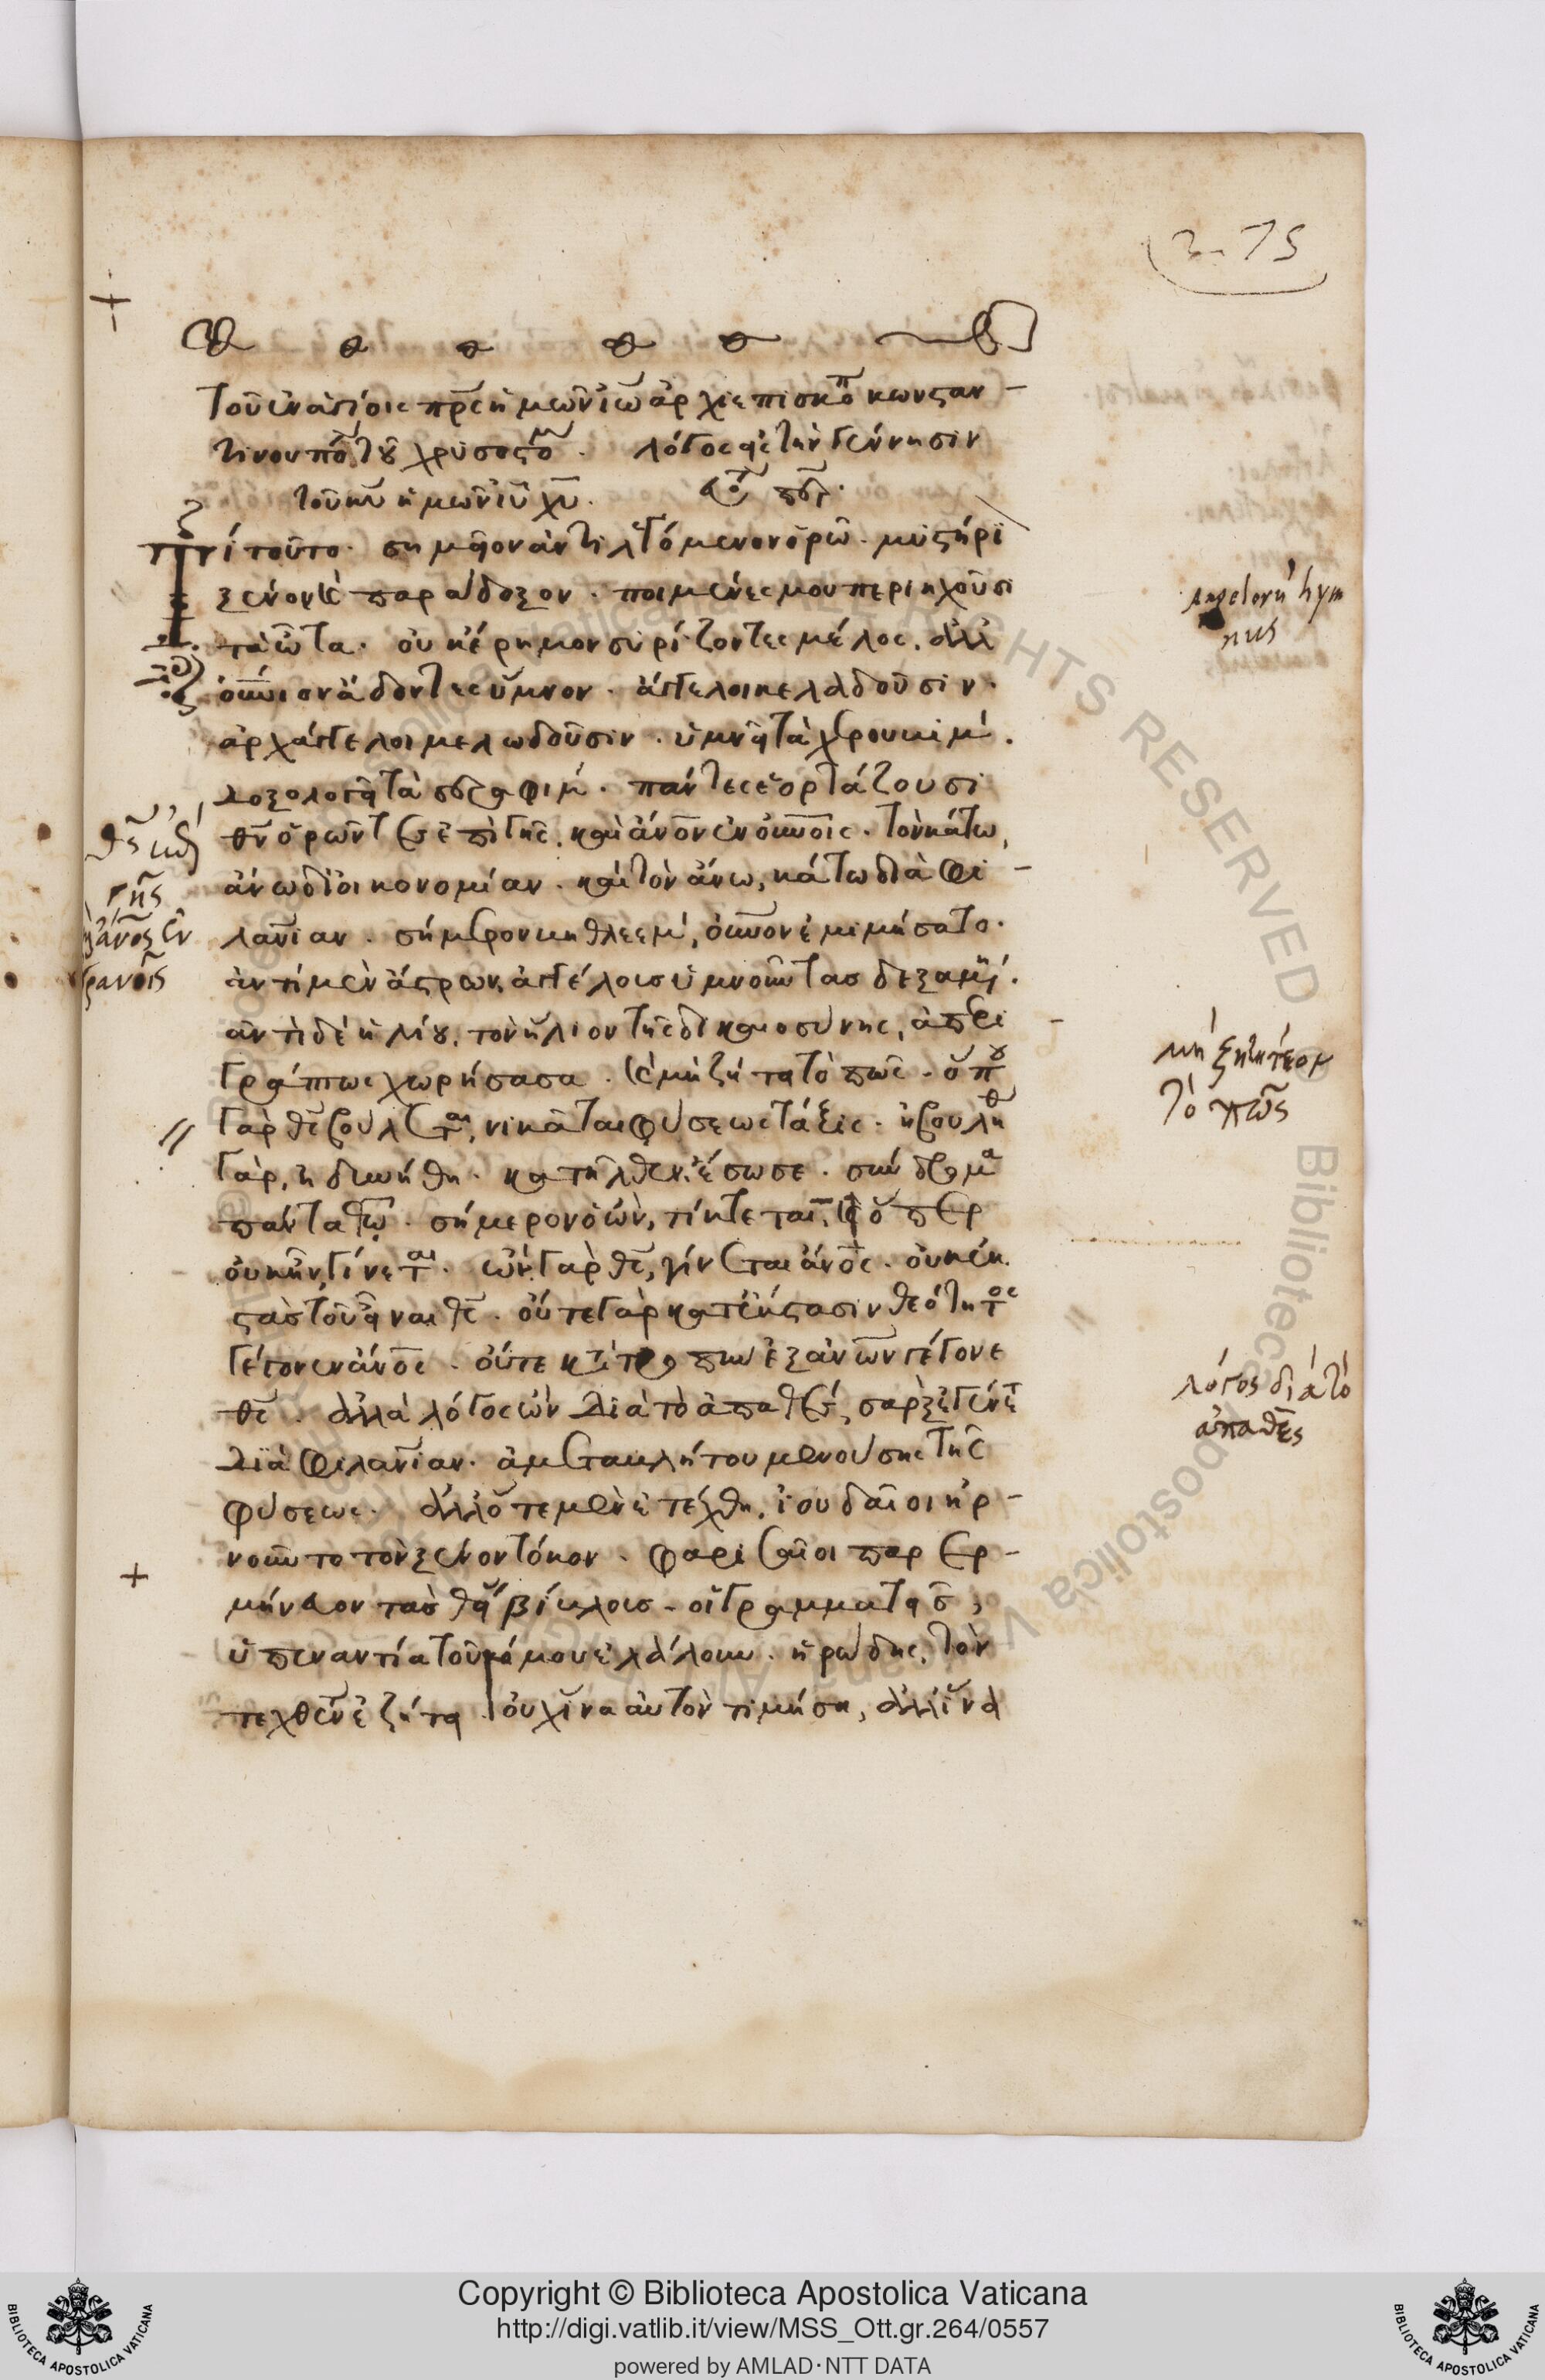 275
Τοῦ ἐν ἁγίοις πρς ἡμῶν ἰω ἀρχιεπισκο κωνσταν-
τινουπο του χρυσοστο. λόγος εἰς τὴν γέννησιν
τοῦ κυ ἡμῶν ιυ χυ. ευ πρ.
Τί τοῦτο. σημεῖον ἀντιλεγόμενον ὁρῶ. μυστήρι
ξένον καὶ παράδοξον. ποιμένες μου περιηχοῦσι
τὰ ὦτα. οὐκ ἔρημον συρίζοντες μέλος. ἀλλ
οὐνιον ἄδοντες ὕμνον. ἄγγελοι κελαδοῦσιν.
ἀρχάγγελοι μελωδοῦσιν. ὑμνεῖ τὰ χερουβίμ.
δοξολογεῖ τὰ σεραφίμ. πάντες ἑορτάζουσι
θν ὁρῶντες ἐπὶ γῆς. καὶ ἀνον ἐν οὐνοις. τὸν κάτω,
ἄνω δι οἰκονομίαν. καὶ τὸν ἄνω, κάτω διὰ φι-
λανιαν. σήμερον βηθλεὲμ, οὐνον ἐμιμήσατο.
ἀντὶ μὲν ἄστρων, ἀγγέλους ὑμνοῦντας δεξαμένη.
ἀντὶ δὲ ἡλίου, τὸν ἥλιον τῆς δικαιοσύνης, ἀπερι-
γράπτως χωρήσασα. καὶ μὴ ζήτει τὸ πῶς. ὅπου
γὰρ θς βούλεται, νικᾶται φύσεως τάξις. ἠβουλήθη
γὰρ, ἠδυνήθη. κατῆλθεν. ἔσωσε. συνδραμε
πάντα θω. σήμερον ὁ ὢν, τίκτεται, καὶ ὁ περ
οὐκ ἦν, γίνεται. ὢν γὰρ θς, γίνεται ἀνος. οὐκ ἐκ
στὰς τοῦ εἶναι θς. οὔτε γὰρ κατ ἔκστασιν θεότητος
γέγονεν ἀνος. οὔτε κατὰ προκοπὴν ἐξ ἀνων γέγονε
θς. ἀλλὰ λόγος ὢν διὰ τὸ ἀπαθὲς, σὰρξ ἐγένετο
διὰ φιλανιαν. ἀμεταβλήτου μενούσης τῆς
φύσεως. ἀλλ ὅτε μὲν ἐτέχθη. ἰουδαῖοι ἠρ-
νοῦντο τὸν ξένον τόκον. φαρισαῖοι παρερ-
μήνευον τὰς θείας βίβλους. οἱ γραμματεῖς,
ὑπεναντία τοῦ νόμου ἐλάλουν. ἡρώδης, τὸν
τεχθέντα ἐζήτει. οὐχ ἵνα αὐτὸν τιμήση, ἀλλ ἵνα
angelorum hym
nus
μὴ ζητητέον
τὸ πῶς
λόγος διὰ τὸ
ἀπαθὲς
Copyright © Biblioteca Apostolica Vaticana
http://digi.vatlib.it/view/MSS_Ott.gr.264/0557
powered by AMLAD·NTT DATA
BIBLIOTECA APOSTOLICA VATICANA
BIBLIOTECA APOSTOLICA VATICANA